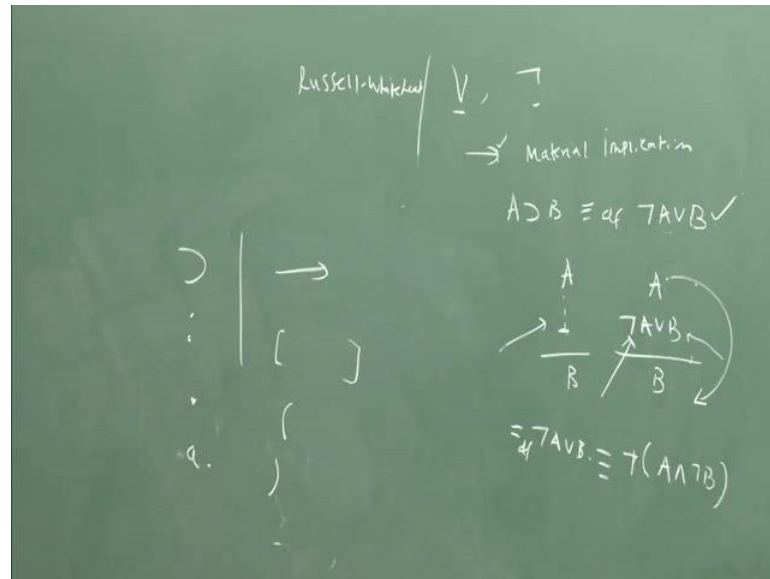 Russell-Whitehead | ∨, ¬
→ ✓ Material Implication
A ⊃ B ≡ df ¬A∨B ✓
⊃ | →
A A
¬A∨B
[ ]
B B
(
q.
)
≡ df ¬A∨B. ≡ ¬(A∧¬B)